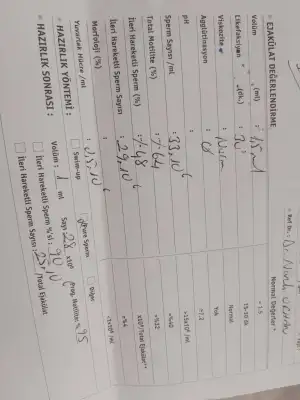 EJAKÜLAT DEĞERLENDİRME
Ref Dr. :
Normal Değerler *
Volüm (ml) : > 1.5
Likefaksiyon (Dk) : 30' 15-30 Dk
Viskozite : Nor Normal
Aglütinasyon : Yok
pH : >7.2
Sperm Sayısı /mL : 33.10⁶ >15x10⁶ /ml
Total Motilite (%) : %64 >%40
İleri Hareketli Sperm (%) : %48 >%32
İleri Hareketli Sperm Sayısı : 29.10⁶ x10⁶/Total Ejakülat**
Morfoloji (%) : >%4
Yuvarlak Hücre /ml : 10⁶ <1x10⁶ /ml
HAZIRLIK YÖNTEMİ : Swim-up Pure Sperm Diğer
HAZIRLIK SONRASI : Volüm : 1 ml Sayı : 28 x10⁶ Prog. Motilite: % 95
İleri Hareketli Sperm %'si : 90
İleri Hareketli Sperm Sayısı : 25 /Total Ejakülat